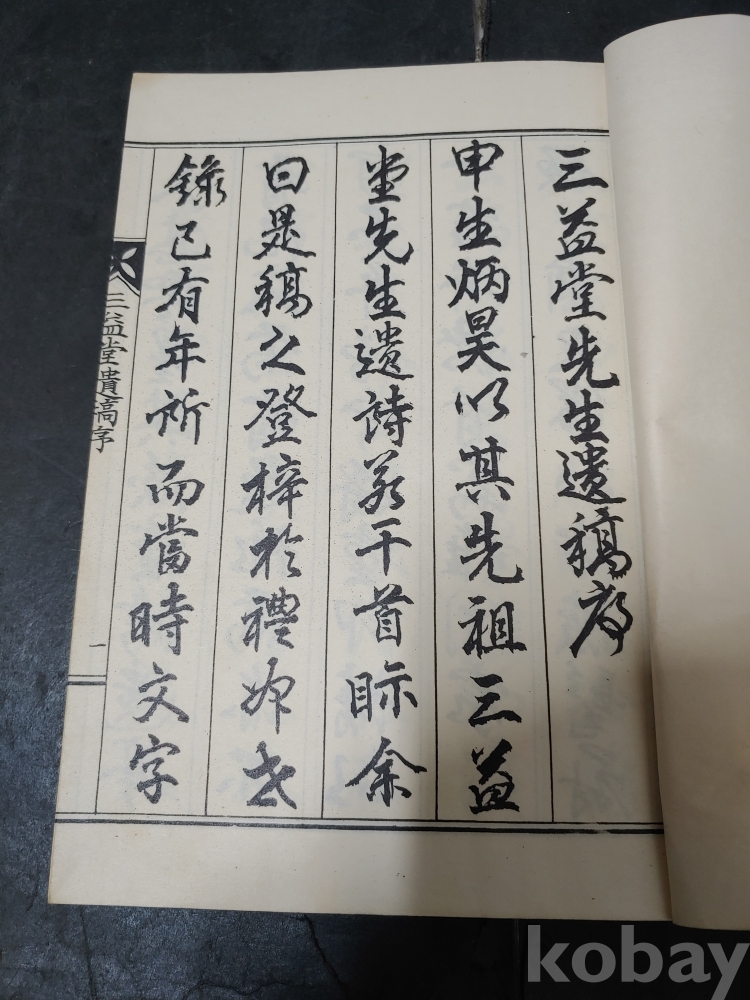 三益堂先生遺稿序
申生炳昊以其先祖三益
堂先生遺詩若干首眎余
曰是稿之登梓於禮妳世
錄已有年所而當時文字
三益堂遺稿序
一
kobay